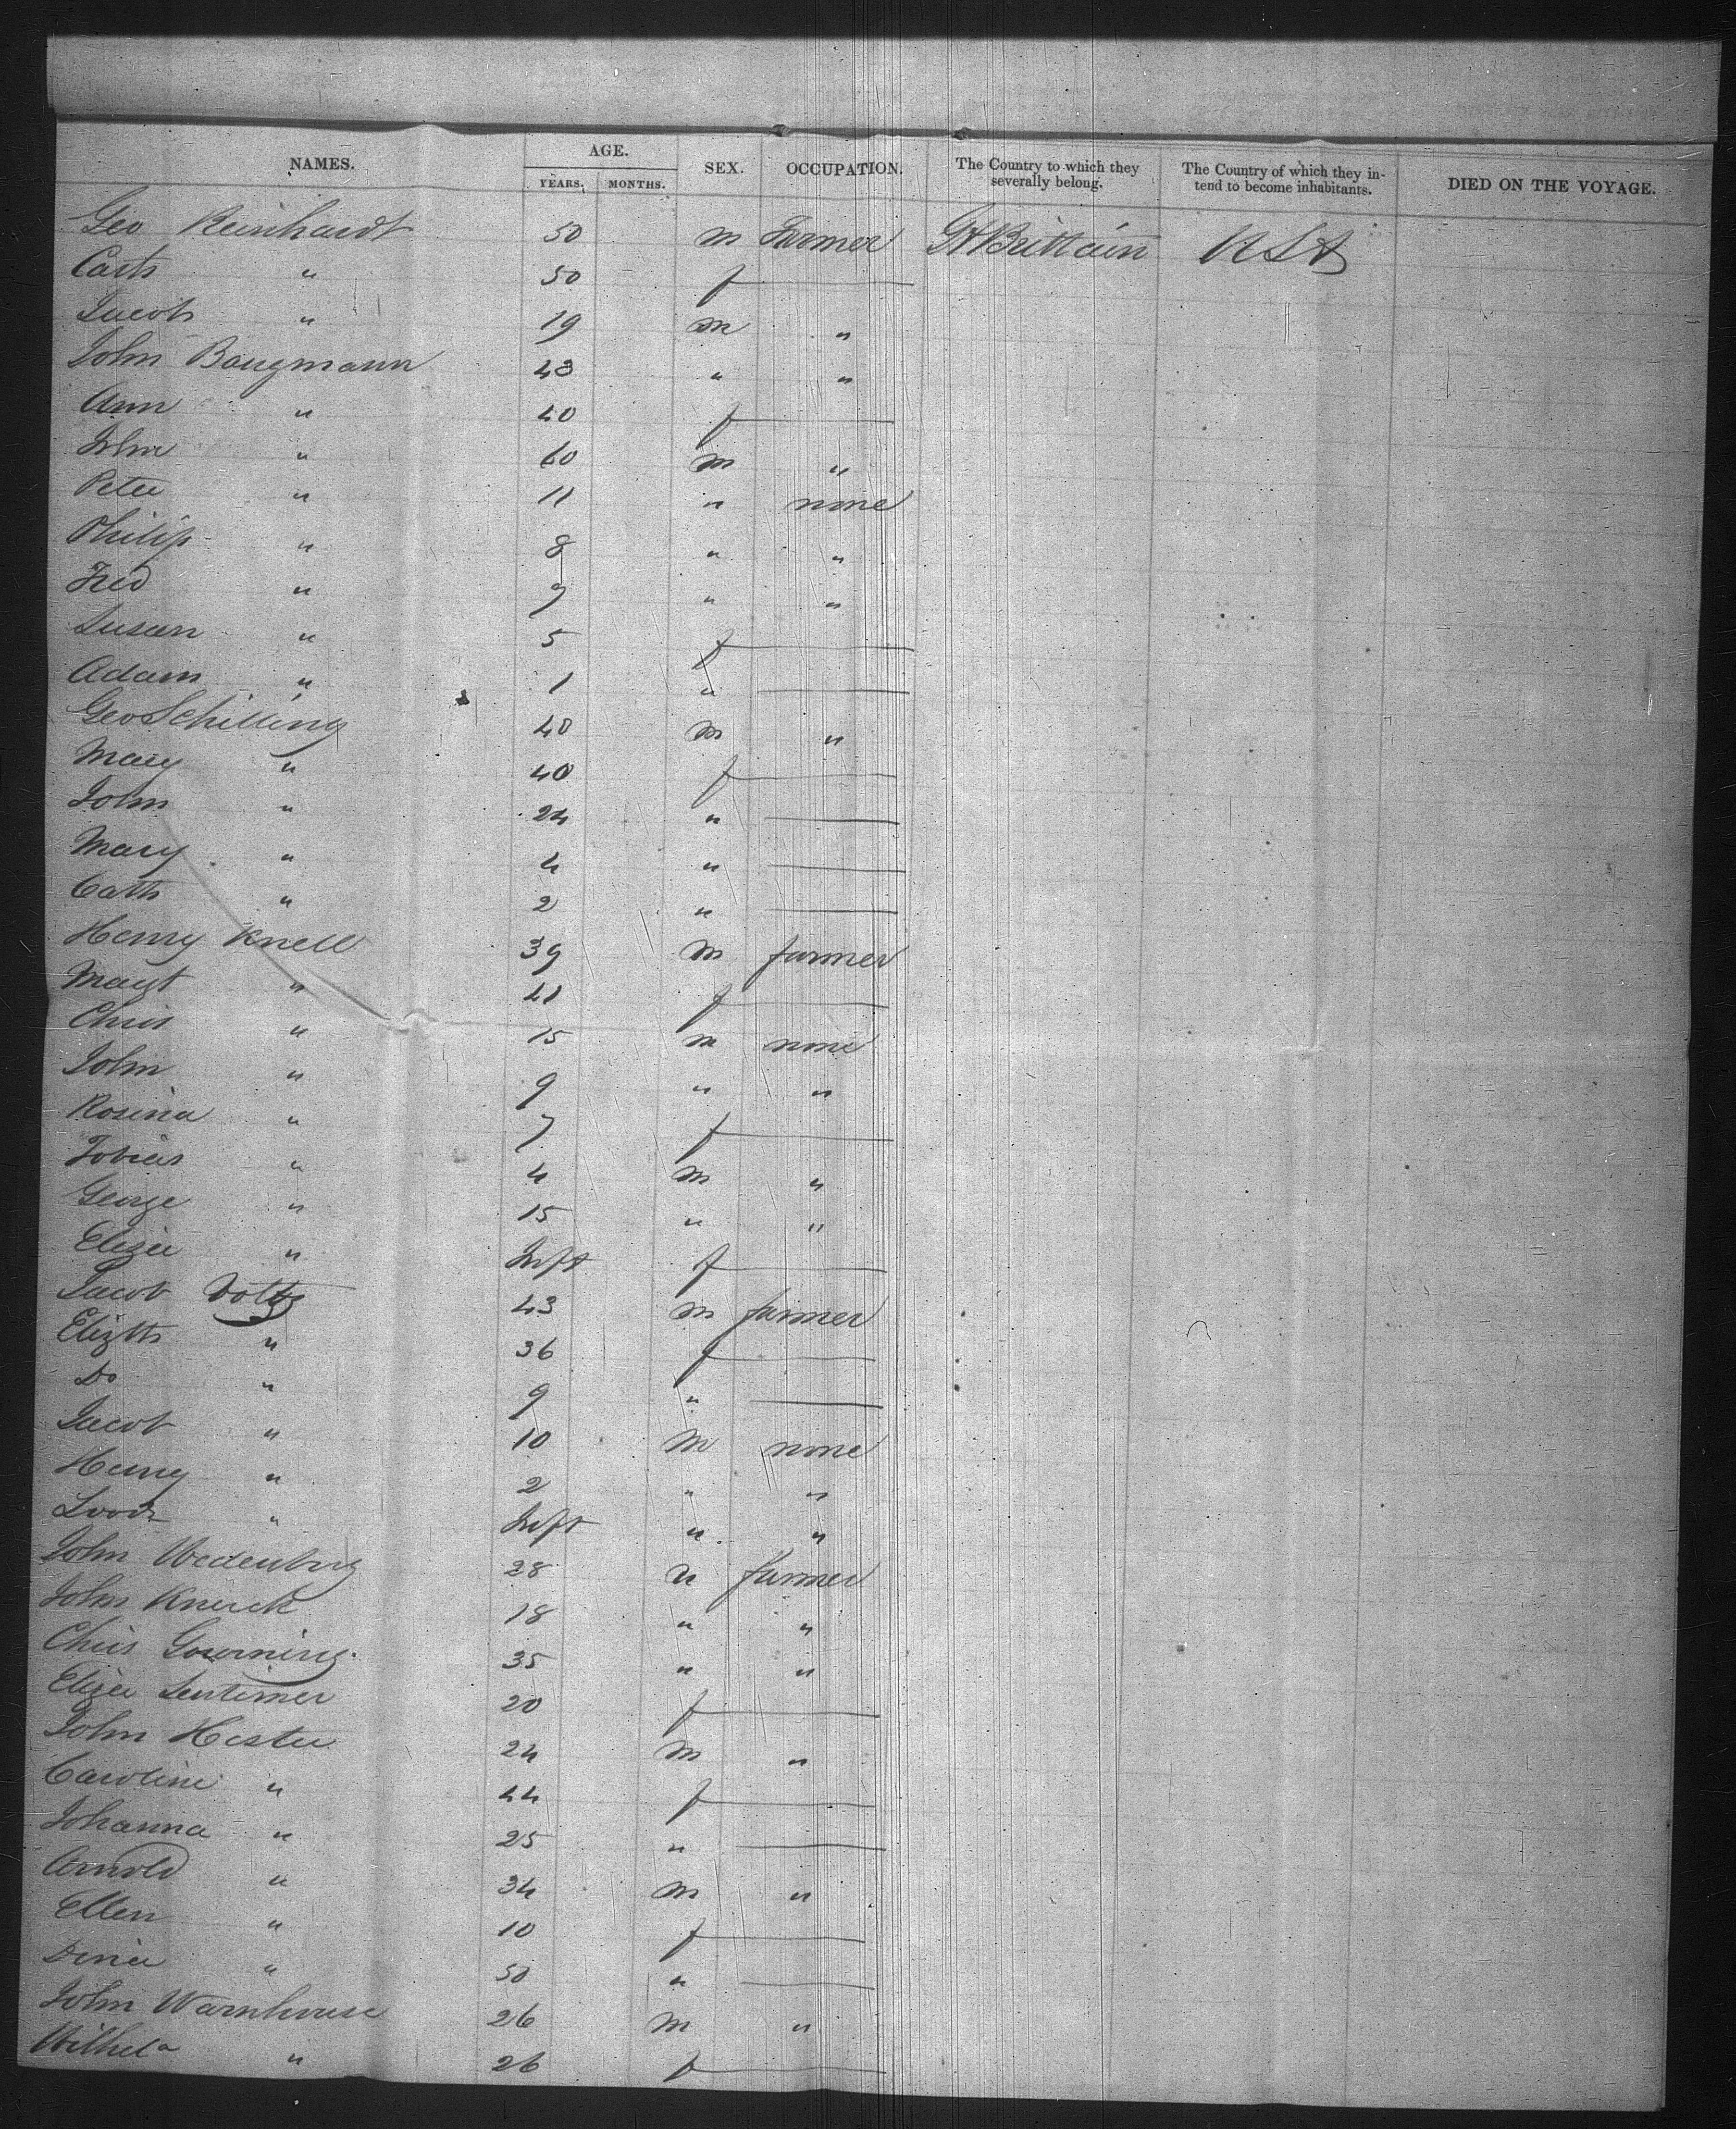 NAMES. AGE. SEX. OCCUPATION. The Country to which they severally belong. The Country of which they intend to become inhabitants. DIED ON THE VOYAGE.
YEARS. MONTHS.
Geo Reinhardt 50 m Farmer Gt Brittain USA
Cath " 50 f —
Jacob " 19 m "
John Baugmann 43 " "
Ann " 40 f —
John " 60 m "
Peter " 11 " none
Philip " 8 " "
Fred " 7 " "
Susan " 5 f —
Adam " 1 " —
Geo Schilling 40 m "
Mary " 40 f —
John " 24 " —
Mary " 4 " —
Cath " 2 " —
Henry Knell 39 m farmer
Magt " 41 f —
Chris " 15 m none
John " 9 " "
Rosina " 7 f —
Tobias " 4 m "
George " 15 " "
Eliza " Inft f —
Jacob Voltz 43 m farmer
Elizth " 36 f —
Do " 9 " —
Jacob " 10 m none
Henry " 2 " "
" Inft " "
John 28 " farmer
John 18 " "
Chris 35 " "
Eliza 20 f —
John Hester 24 m "
Caroline " 44 f —
Johanna " 25 " —
Arnold " 34 m "
Ellen " 10 f —
Dina " 50 " —
John Warnhouse 26 m "
Wilhela " 26 f —